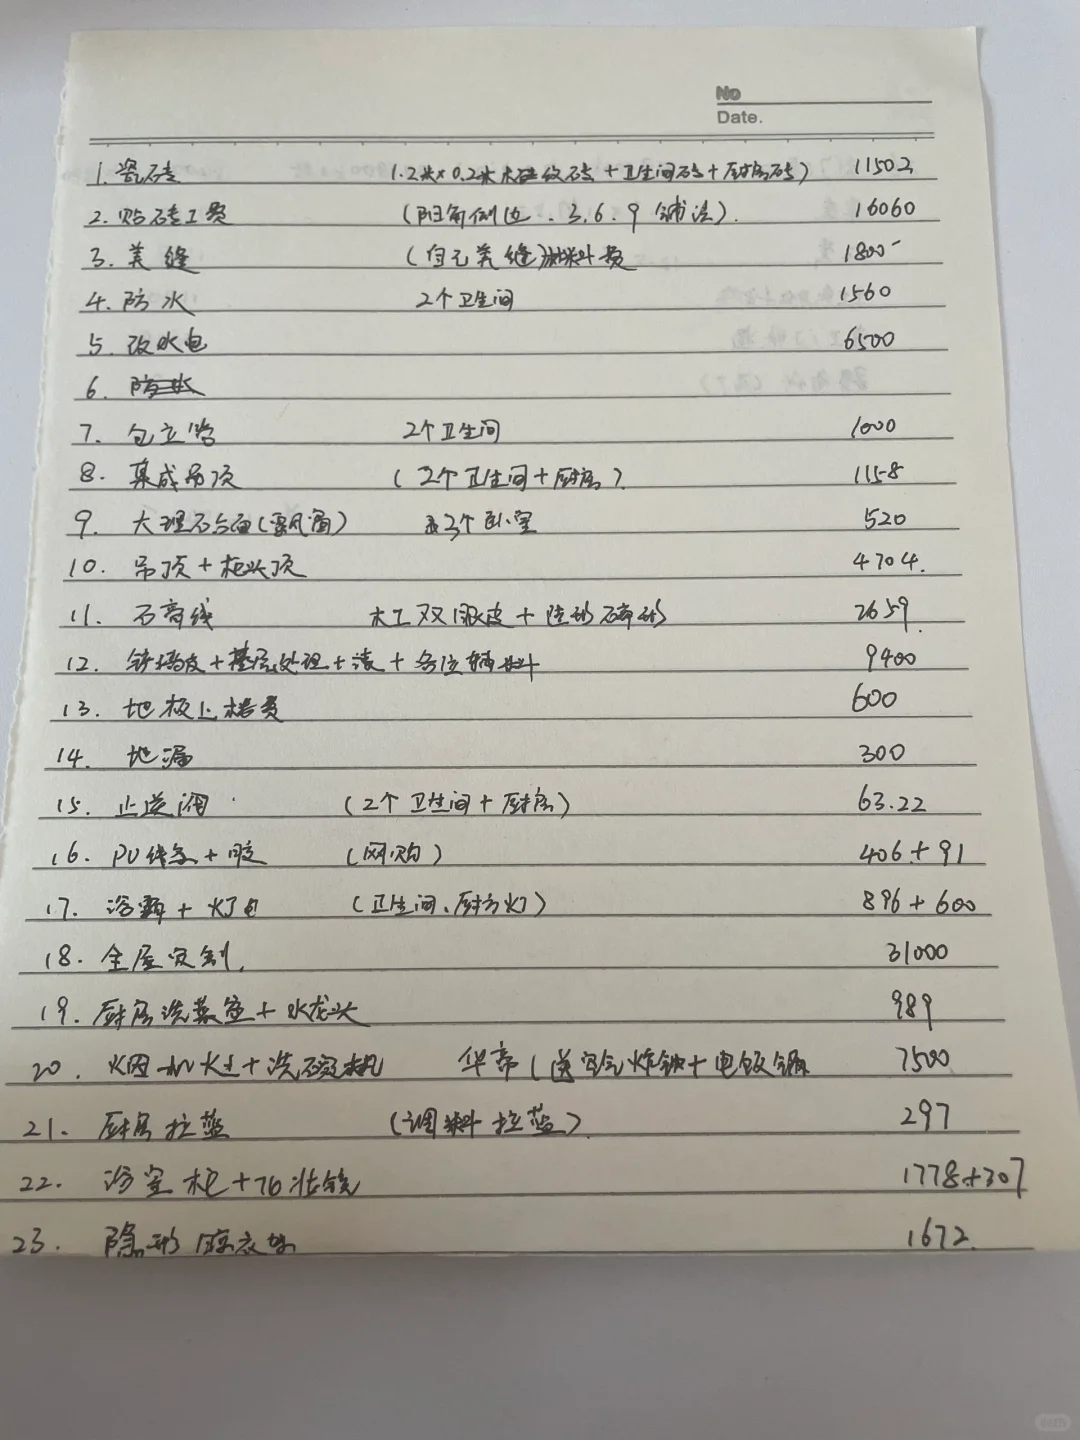 No
Date.
1. 瓷砖 1.2米×0.2米木纹砖+卫生间砖+厨房砖) 11502
2. 贴砖工费 (阳角倒边.3.6.9铺法). 16060
3. 美缝 (自己美缝)材料费 1800
4. 防水 2个卫生间 1560
5. 改水电 6500
6. 防水
7. 包立管 2个卫生间 1000
8. 集成吊顶 (2个卫生间+厨房). 1158
9. 大理石台面(飘窗) 3个卧室 520
10. 吊顶+柜头顶 4704.
11. 石膏线 木工双眼皮+ 2659.
12. 铲墙皮+基层处理+漆+各位辅料 9400
13. 地板上楼费 600
14. 地漏 300
15. 止逆阀 (2个卫生间+厨房) 63.22
16. PU线条+胶 (网购) 406+91
17. 浴霸+灯 (卫生间、厨房灯) 896+600
18. 全屋定制. 31000
19. 厨房洗菜盆+水龙头 989
20. 烟机灶+洗碗机 华帝(送空气炸锅+电饭锅 7500
21. 厨房拉蓝 (调料拉蓝). 297
22. 浴室柜+化妆镜 1778+307
23. 隐形晾衣架 1672.